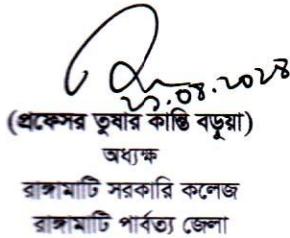 ২১.০৪.২০২৪
(প্রফেসর তুষার কান্তি বড়ুয়া)
অধ্যক্ষ
রাঙ্গামাটি সরকারি কলেজ
রাঙ্গামাটি পার্বত্য জেলা